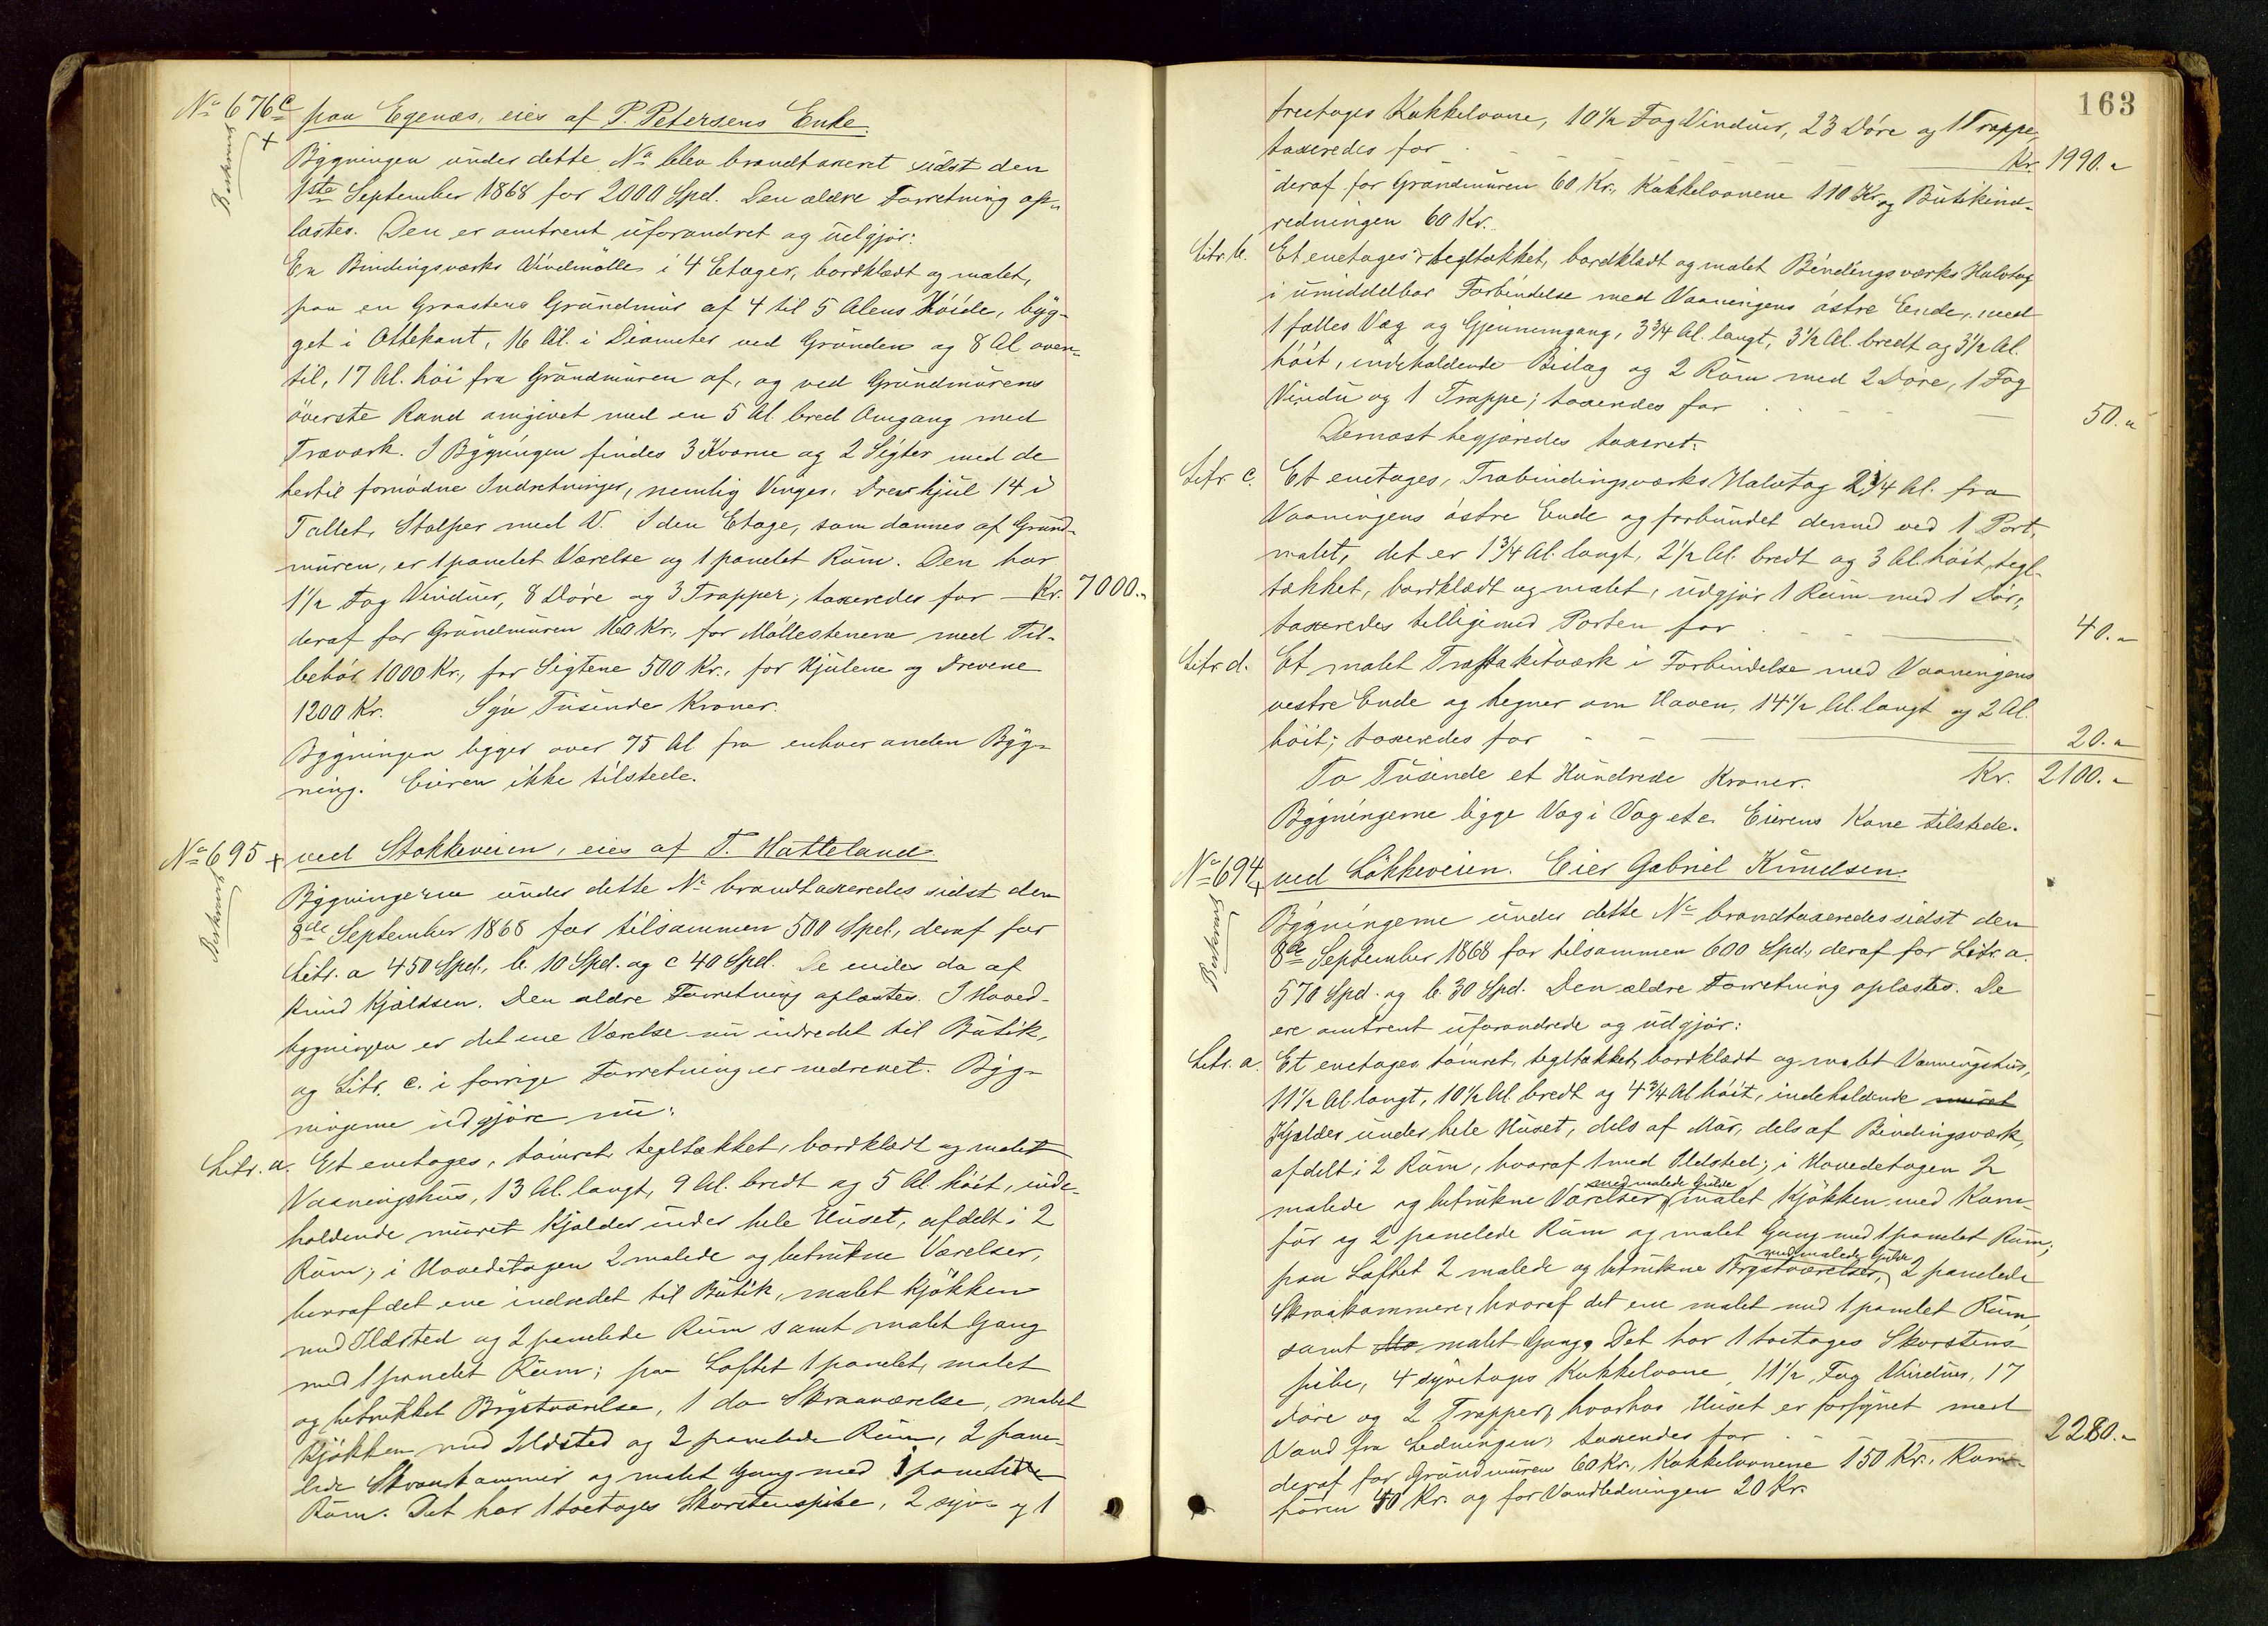 No 676c paa Egenæs, eies af P. Petersens Enke.
Beskrevet
Bygningen under dette No blev brandtaxeret sidst den
1ste September 1868 for 2000 Spd. Den ældre Forretning op-
læstes. Den er omtrent uforandret og udgjør:
En Bindingsværks Vindmølle i 4 Etager, bordklædt og malet,
paa en Graastens Grundmur af 4 til 5 Alens Høide, byg-
get i Ottekant, 16 Al. i Diameter ved Grunden og 8 Al oven-
til, 17 Al. høi fra Grundmuren af, og ved Grundmurens
øverste Rand omgivet med en 5 Al. bred Omgang med
Træværk. I Bygningen findes 3 Kværne og 2 Sigter med de
hertil fornødne Indretninger, nemlig Vinger, Drevhjul 14 i
Tallet, Stolper med V. I den Etage, som dannes af Grund-
muren, er 1 panelet Værelse og 1 panelet Rum. Den har
1½ Fag Vinduer, 8 Døre og 3 Trapper; taxeredes for Kr. 7000.-
deraf for Grundmuren 160 Kr., for Møllestenene med Til-
behør 1000 Kr., for Sigtene 500 Kr., for Hjulene og Drevene
1200 Kr. Syv Tusinde Kroner.
Bygningen ligger over 75 Al fra enhver anden Byg-
ning. Eieren ikke tilstede.
No 695 ved Stokkeveien, eies af T. Hatteland.
Beskrevet
Bygningerne under dette No brandtaxeredes sidst den
8de September 1868 for tilsammen 500 Spd., deraf for
Litr. a 450 Spd., b. 10 Spd. og c 40 Spd. De eiedes da af
Knud Kjældsen. Den ældre Forretning oplæstes. I Hoved-
bygningen er det ene Værelse nu indredet til Butik,
og Litr. c. i forrige Forretning er nedrevet. Byg-
ningerne udgjøre nu:
Litr. a. Et enetages, tømret, tegltækket, bordklædt og malet
Vaaningshus, 13 Al. langt, 9 Al. bredt og 5 Al. høit, inde-
holdende muret Kjælder under hele Huset, afdelt i 2
Rum; i Hovedetagen 2 malede og betrukne Værelser,
hvoraf det ene indredet til Butik, malet Kjøkken
med Ildsted og 2 panelede Rum samt malet Gang
med 1 panelet Rum; paa Loftet 1 panelet, malet
og betrukket Brystværelse, 1 do Skraaværelse, malet
Kjøkken med Ildsted og 2 panelede Rum, 2 pane-
lede Skraakammer og malet Gang med 1 panelede
Rum. Det har 1 toetages Skorstenspibe, 2 syv- og 1
163
treetages Kakkelovne, 10½ Fag Vinduer, 23 Døre og 1 Trappe,
taxeredes for Kr. 1990.-
deraf for Grundmuren 60 Kr., Kakkelovnene 110 Kr. og Butikind-
redningen 60 Kr.
Litr. b. Et enetages, tegltækket, bordklædt og malet Bindingsværks Halvtag
i umiddelbar Forbindelse med Vaaningens østre Ende, med
1 fælles Væg og Gjennemgang, 3¾ Al. langt, 3½ Al. bredt og 3½ Al.
høit, indeholdende Bislag og 2 Rum med 2 Døre, 1 Fag
Vindu og 1 Trappe; taxeredes for 50.-
Dernæst begjæredes taxeret:
Litr. c. Et enetages, Træbindingsværks Halvtag 2¼ Al. fra
Vaaningens østre Ende og forbundet dermed ved 1 Port,
malet, det er 1¾ Al. langt, 2½ Al. bredt og 3 Al. høit, tegl-
tækket, bordklædt og malet, udgjør 1 Rum med 1 Dør;
taxeredes tilligemed Porten for 40.-
Litr. d. Et malet Træstakitværk i Forbindelse med Vaaningens
vestre Ende og hegner om Haven, 14½ Al. langt og 2 Al.
høit; taxeredes for 20.-
To Tusinde et Hundrede Kroner. Kr. 2100.-
Bygningerne ligge Væg i Væg etc. Eierens Kone tilstede.
No 694 ved Løkkeveien. Eier Gabriel Knudsen.
Beskrevet
Bygningerne under dette No brandtaxeredes sidst den
8de September 1868 for tilsammen 600 Spd., deraf for Litr. a.
570 Spd. og b. 30 Spd. Den ældre Forretning oplæstes. De
ere omtrent uforandrede og udgjør:
Litr. a. Et enetages, tømret, tegltækket, bordklædt og malet Vaaningshus,
11½ Al. langt, 10½ Al. bredt og 4¾ Al høit, indeholdende muret
Kjælder under hele Huset, dels af Mur, dels af Bindingsværk,
afdelt i 2 Rum, hvoraf 1 med Ildsted; i Hovedetagen 2
malede og betrukne Værelser med malede Gulve, malet Kjøkken med Kom-
før og 2 panelede Rum og malet Gang med 1 panelet Rum;
paa Loftet 2 malede og betrukne Brystværelser, med malede Gulve 2 panelede
Skraakammere, hvoraf det ene malet med 1 panelet Rum,
samt malet Gang. Det har 1 toetages Skorstens-
pibe, 4 syvetages Kakkelovne, 11½ Fag Vinduer, 17
Døre og 2 Trapper, hvorhos Huset er forsynet med
Vand fra Ledningen; taxeredes for 2280.-
deraf for Grundmuren 60 Kr., Kakkelovnene 150 Kr., Kom-
føren 40 Kr. og for Vandledningen 20 Kr.